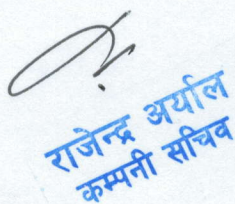 राजेन्द्र अर्याल
कम्पनी सचिव